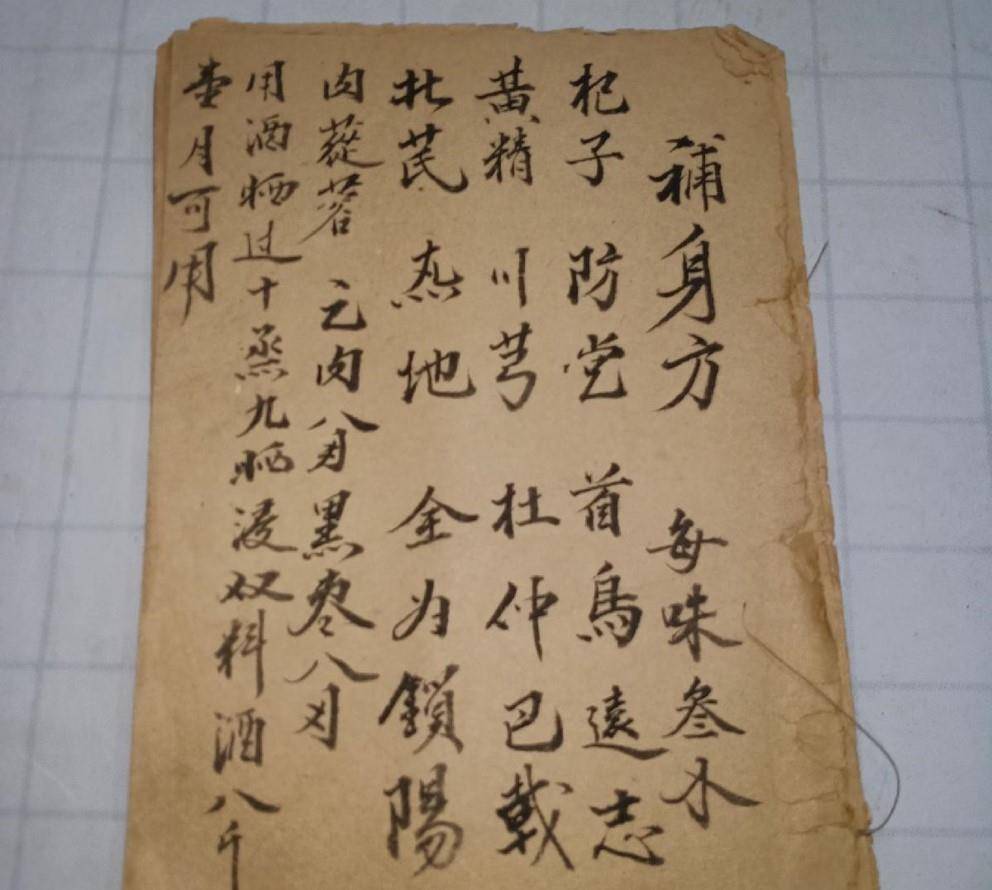 補身方 每味叁
杞子 防党 首烏 遠志
黃精 川芎 杜仲 巴戟
北芪 熟地 金 鎖陽
肉蓯蓉 元肉八刄 黑枣八刄
用酒晒过十蒸九晒浸双料酒八斤
壹月可用